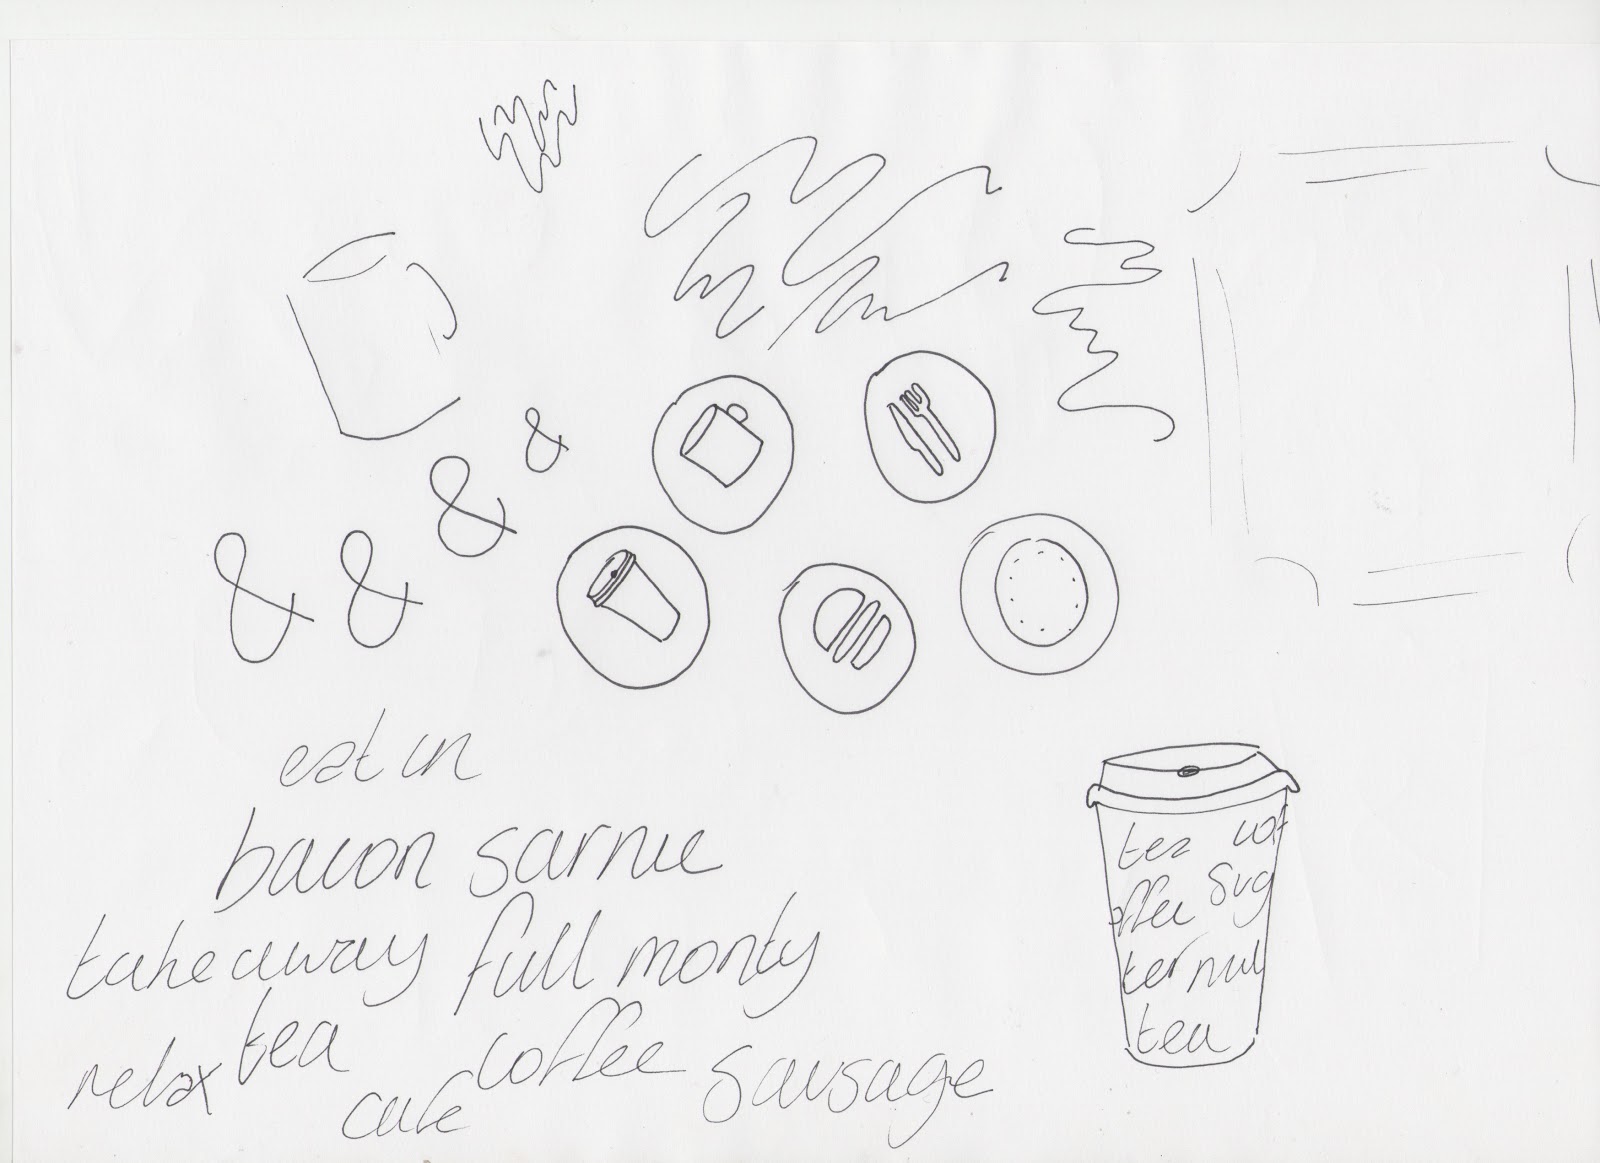 &
&
& &
eat in
bacon sarnie
takeaway full monty
tea coffee
relax cafe sausage
tea cof
offee sug
ter mil
tea